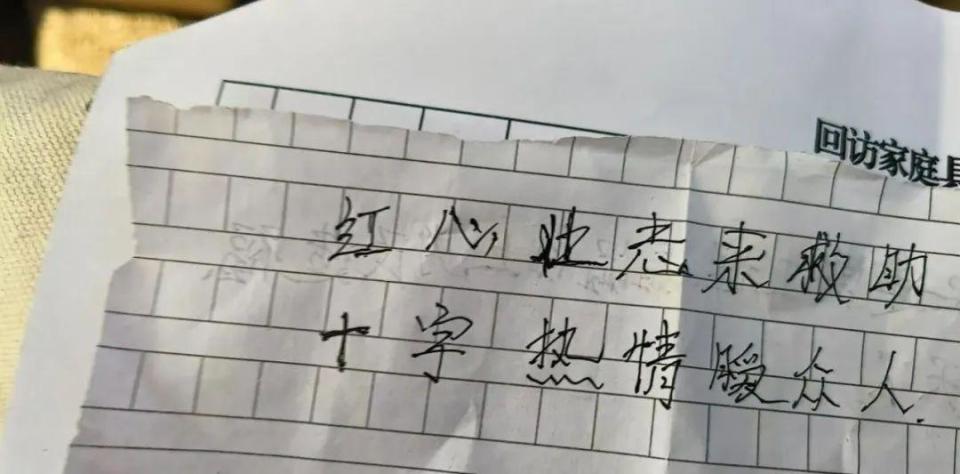 回访家庭
红心壮志来救助
十字热情暖众人.